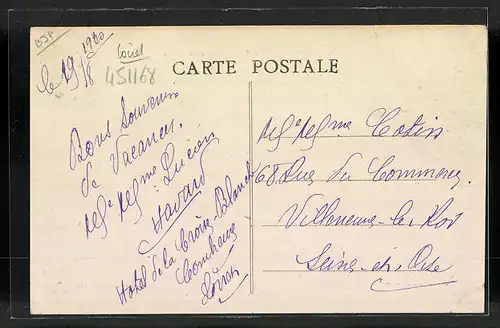 BJP
1920
le 19/8
Loiret
451168
CARTE POSTALE
Bons Souvenirs
de Vacances.
Lucien
Havard
Hotel de la Croix-Blanche
Loiret
Cotin
68 Rue du Commerce
Villeneuve-le-Roi
Seine-et-Oise